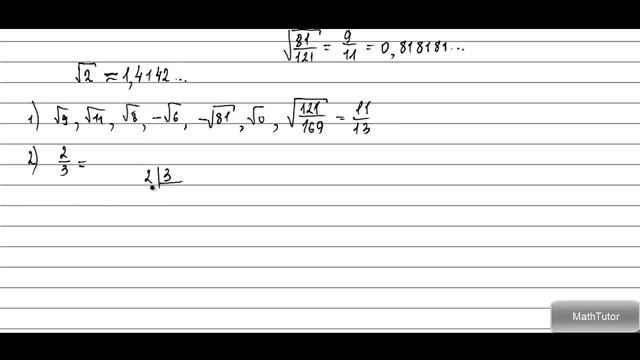 √81/121 = 9/11 = 0,818181...
√2 ≈ 1,4142...
1) √9, √11, √8, -√6, -√81, √0, √121/169 = 11/13
2) 2/3 =
2 | 3
MathTutor